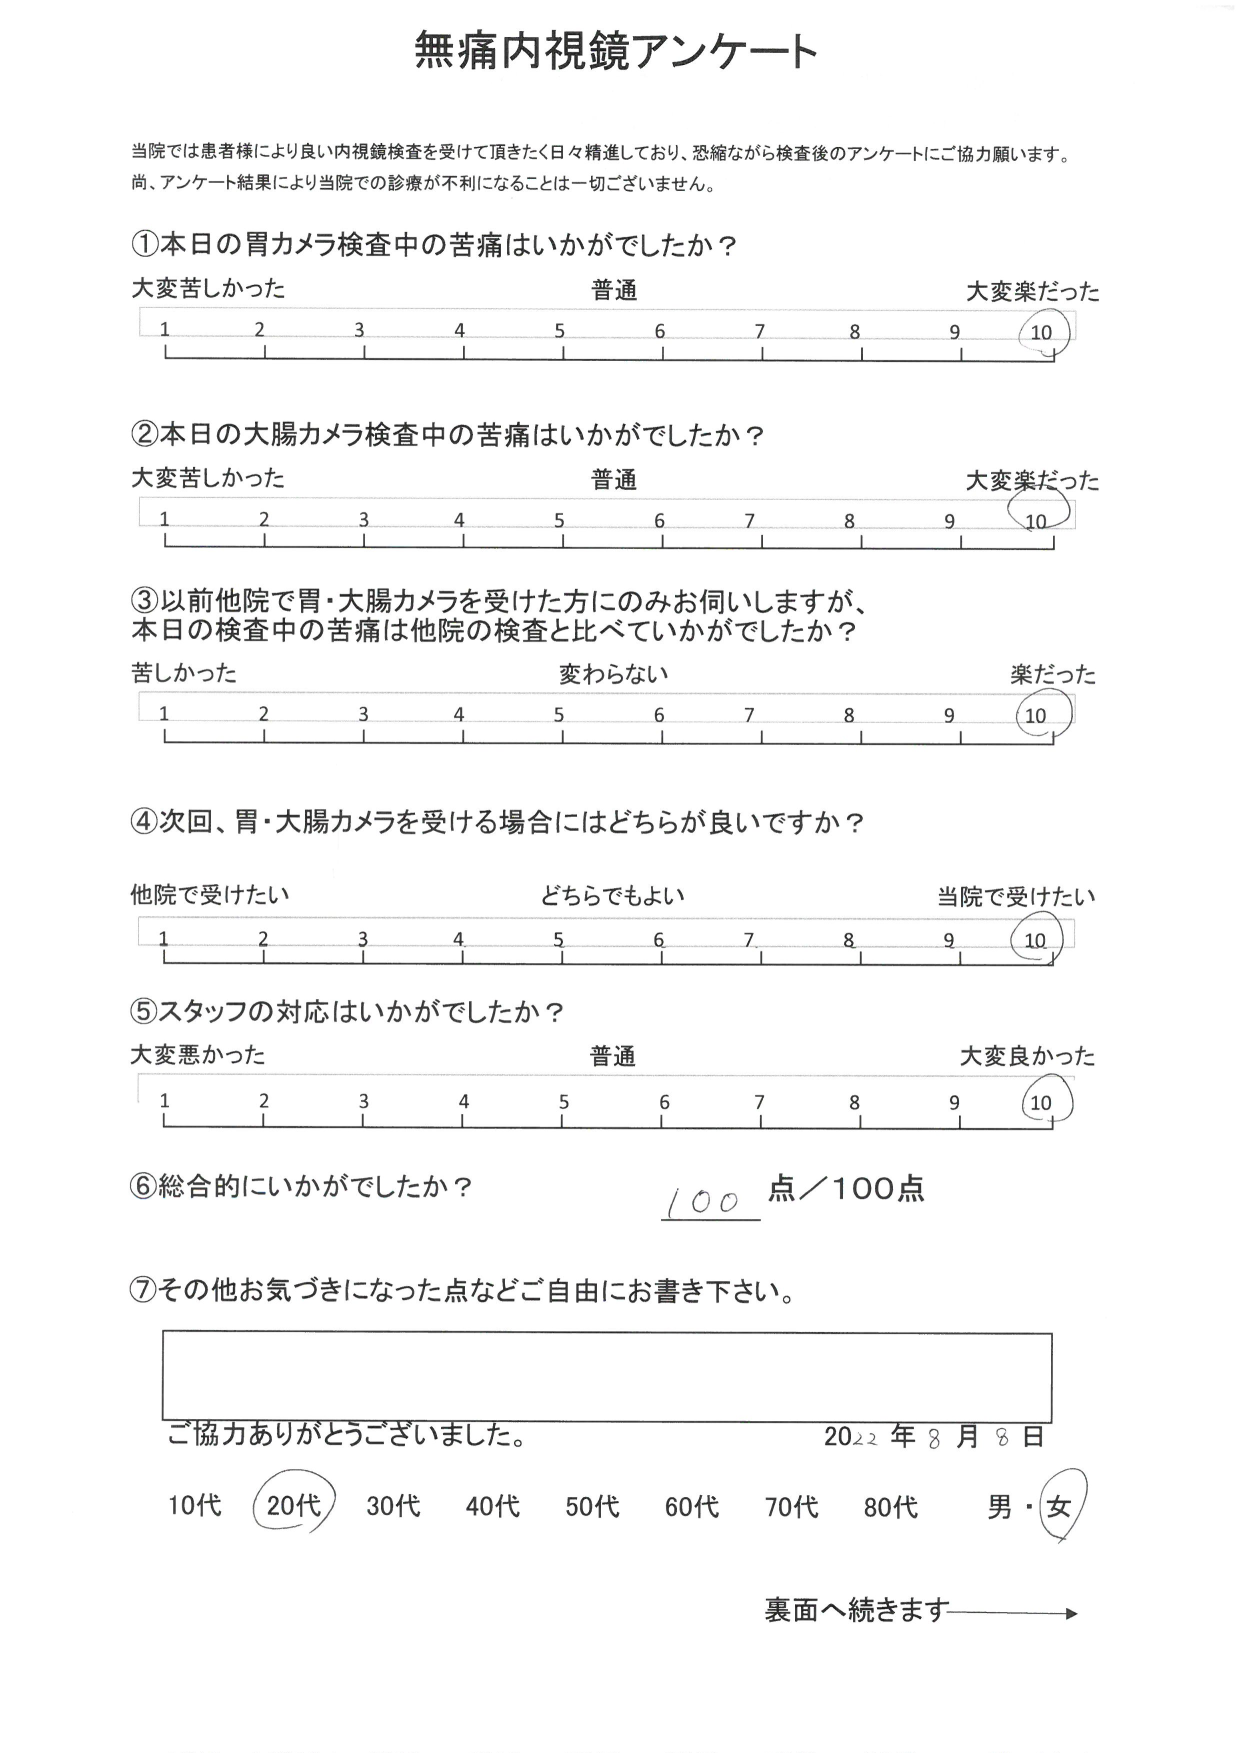 無痛内視鏡アンケート
当院では患者様により良い内視鏡検査を受けて頂きたく日々精進しており、恐縮ながら検査後のアンケートにご協力願います。
尚、アンケート結果により当院での診療が不利になることは一切ございません。
①本日の胃カメラ検査中の苦痛はいかがでしたか？
大変苦しかった 普通 大変楽だった
1 2 3 4 5 6 7 8 9 10
②本日の大腸カメラ検査中の苦痛はいかがでしたか？
大変苦しかった 普通 大変楽だった
1 2 3 4 5 6 7 8 9 10
③以前他院で胃・大腸カメラを受けた方にのみお伺いしますが、
本日の検査中の苦痛は他院の検査と比べていかがでしたか？
苦しかった 変わらない 楽だった
1 2 3 4 5 6 7 8 9 10
④次回、胃・大腸カメラを受ける場合にはどちらが良いですか？
他院で受けたい どちらでもよい 当院で受けたい
1 2 3 4 5 6 7 8 9 10
⑤スタッフの対応はいかがでしたか？
大変悪かった 普通 大変良かった
1 2 3 4 5 6 7 8 9 10
⑥総合的にいかがでしたか？ 100 点／100点
⑦その他お気づきになった点などご自由にお書き下さい。
ご協力ありがとうございました。 2022 年 8 月 8 日
10代 20代 30代 40代 50代 60代 70代 80代 男・女
裏面へ続きます